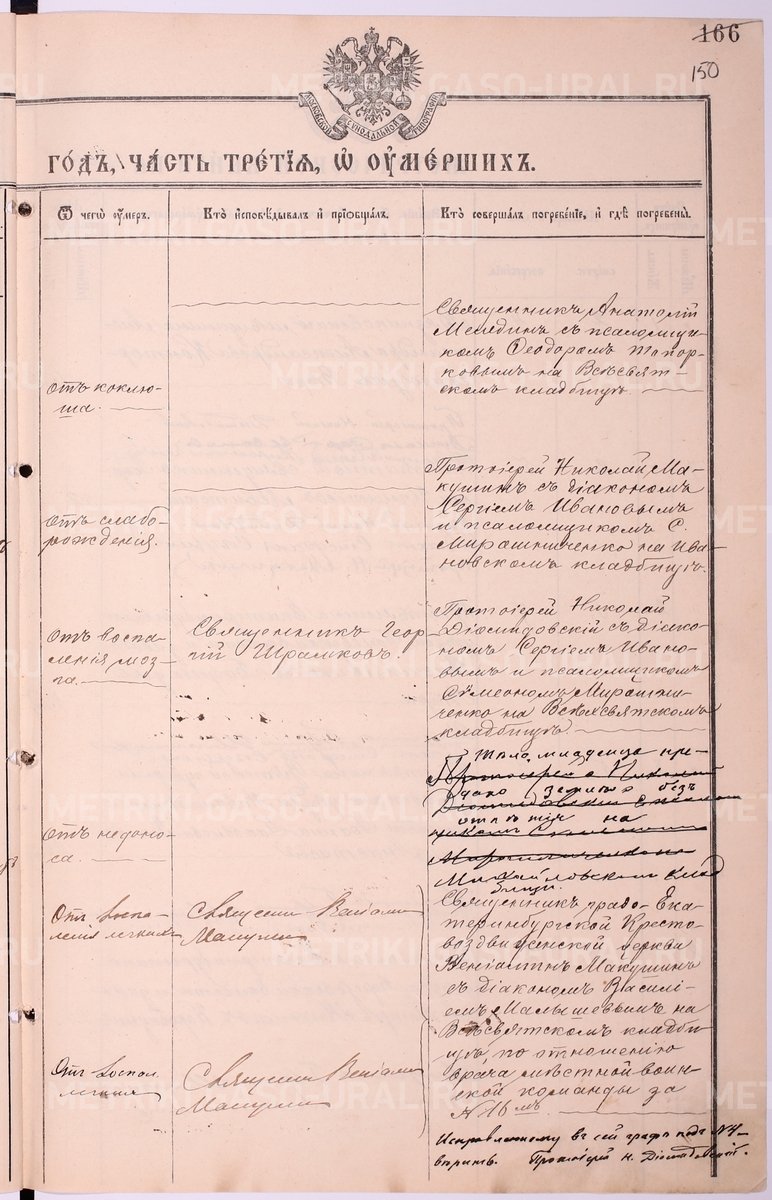 166
150
МОСКОВСКОЙ СѴНОДАЛЬНОЙ ТИПОГРАФІИ
METRIKI.GASO-URAL.RU
ГОДЪ, ЧАСТЬ ТРЕТІЯ, Ѿ ОУМЕРШИХЪ.
Ѿ чегѡ оумеръ.
Кто исповѣдывалъ и пріобщалъ.
Кто совершалъ погребеніе, и гдѣ погребены.
отъ коклю-
ша.
Священникъ Анатолій
Мелединъ съ псаломщи-
комъ Ѳеодоромъ Топор-
ковымъ на Всѣсвят-
скомъ кладбищѣ.
отъ слабо-
рожденія.
Протоіерей Николай Ма-
кушинъ съ діакономъ
Сергіемъ Ивановымъ
и псаломщикомъ С.
Мирошниченко на Ива-
новскомъ кладбищѣ.
отъ воспа-
ленія моз-
га.
Священникъ Геор
гій Шрамковъ.
Протоіерей Николай
Діомидовскій съ діако-
номъ Сергіемъ Ивано-
вымъ и псаломщикомъ
Сѵмеономъ Мирошни-
ченко на Всѣхсвятскомъ
кладбищѣ.
отъ недоно-
са.
Тѣло младенца пре-
дано землѣ безъ
отпѣтія на
Михайловскомъ клад
бищѣ.
Отъ воспа-
ленія легкихъ
Священни Веніами
Макушин
Священникъ градо-Ека-
теринбургской Кресто-
воздвиженской церкви
Веніаминъ Макушинъ
съ діакономъ Василі-
емъ Малышевымъ на
Всѣсвятскомъ кладби-
щѣ, по отношенію
врача мѣстной воин-
ской команды за
№ 16мъ.
Отъ воспал
легкихъ
Священни Веніами
Макушин
Исправленному въ сей графѣ подъ № 4
вѣрить. Протоіерей Н. Діомидовскій.